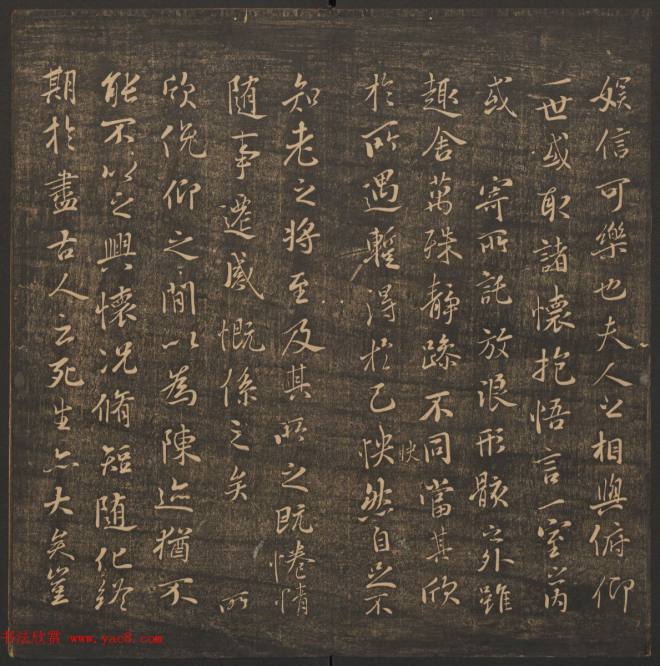 娛信可樂也夫人之相與俯仰
一世或取諸懷抱悟言一室之內
或 寄所託放浪形骸之外雖
趣舍萬殊靜躁不同當其欣
於所遇蹔得於己怏然自足不
知老之將至及其所之既惓情
隨事遷感慨係之矣 所
欣俛仰之閒以為陳迹猶不
能不以之興懷況脩短隨化終
期於盡古人云死生亦大矣豈
书法欣赏 www.yac8.com